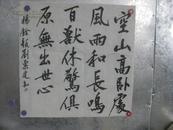 空山高卧處
風雨和長鳴
百獸休驚俱
原無出世心